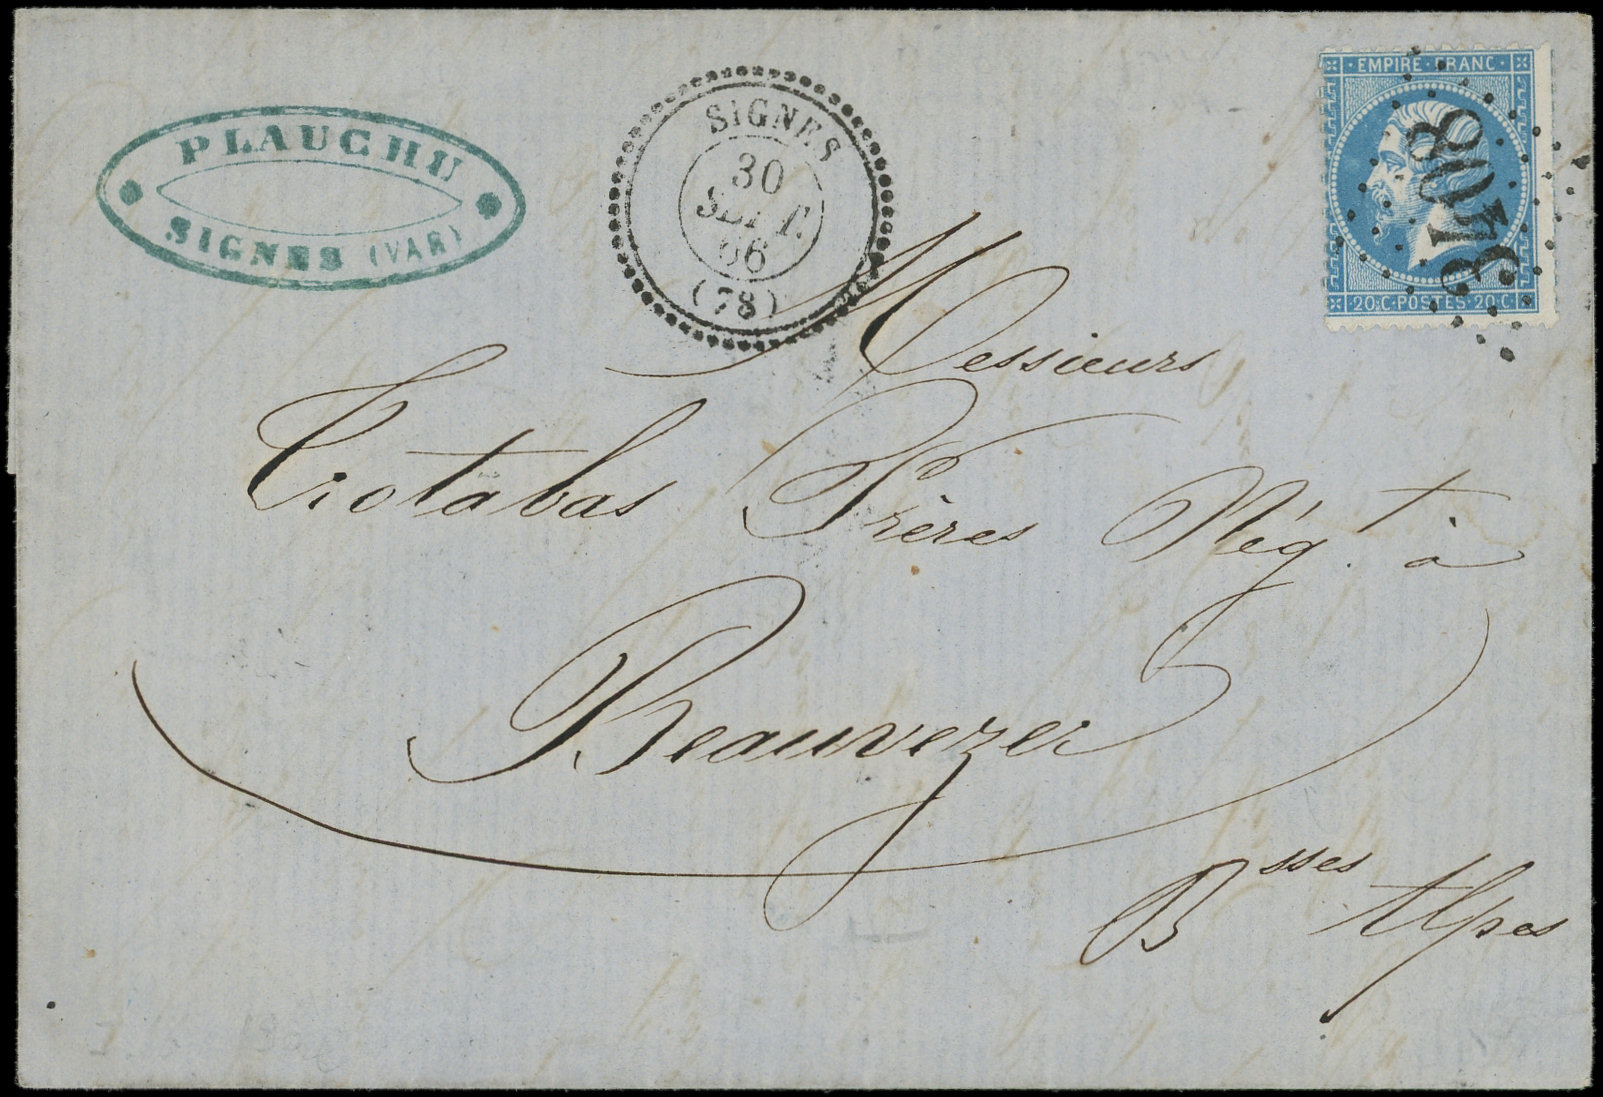 PLAUCHU
SIGNES (VAR)
SIGNES
30
SEPT.
66
(78)
EMPIRE FRANC
20 C POSTES 20 C
3408
Messieurs
Trotabas Frères Négt à
Beauvezer
Bsses Alpes